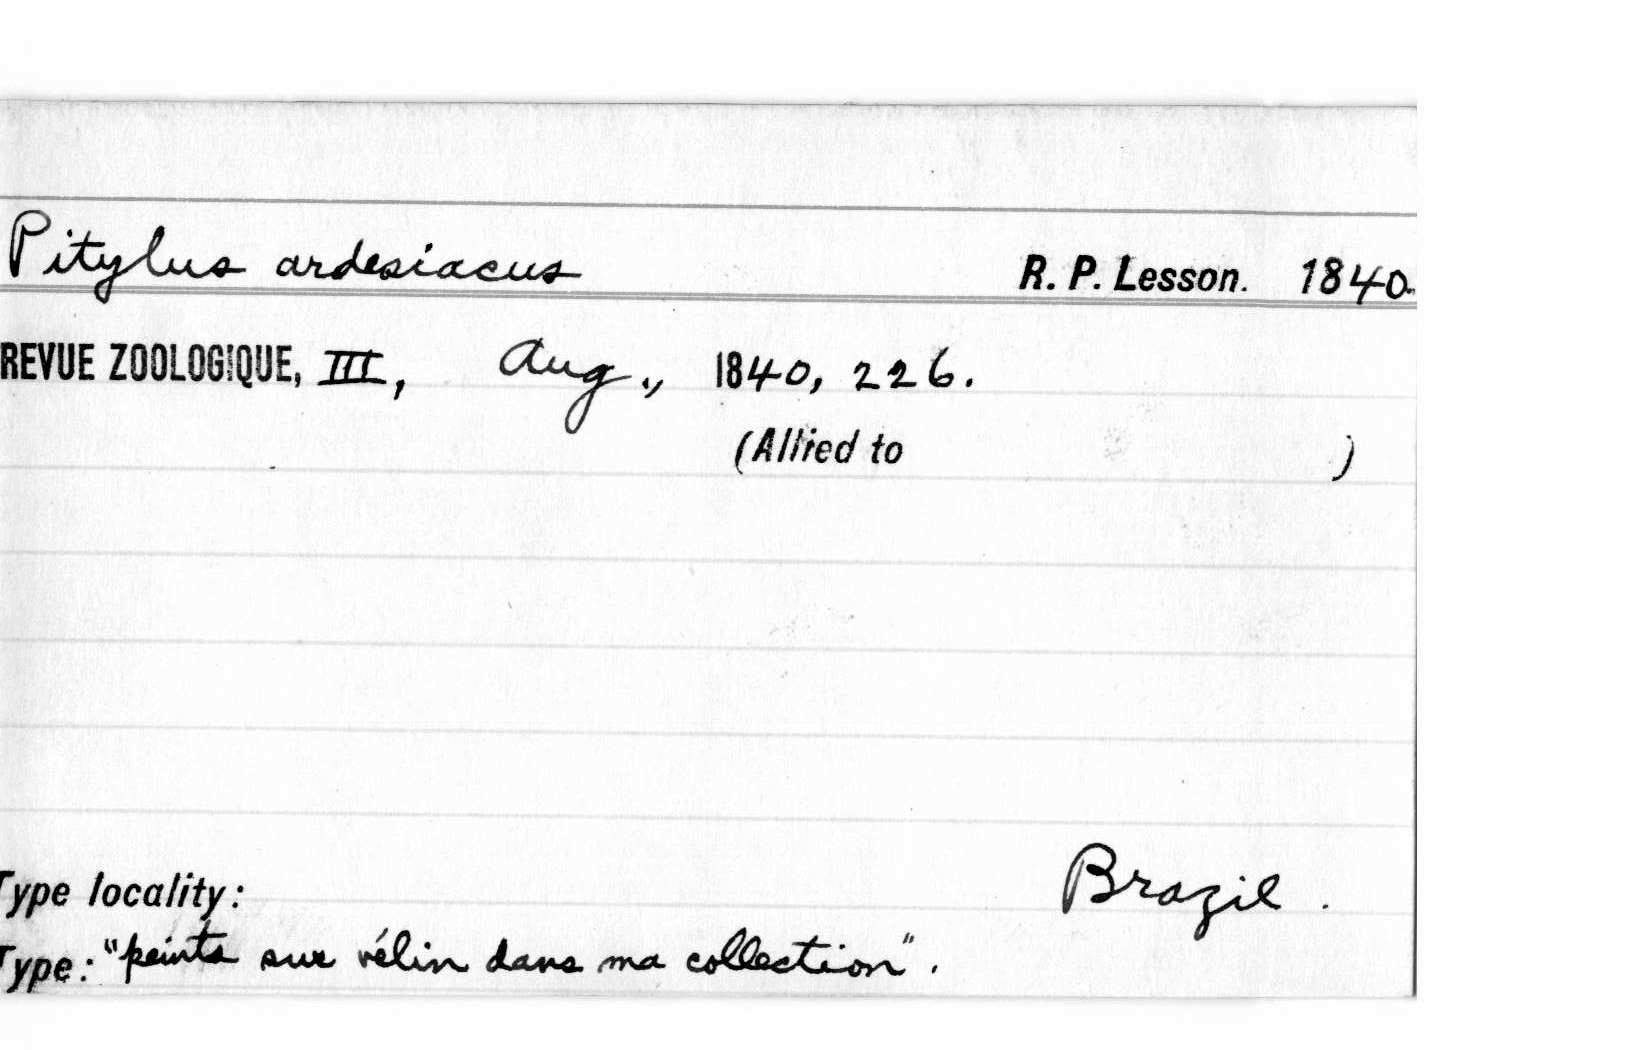 Pitylus ardesiacus R. P. Lesson. 1840.
REVUE ZOOLOGIQUE, III, Aug., 1840, 226.
(Allied to )
Type locality: Brazil.
Type: "peints sur vélin dans ma collection".